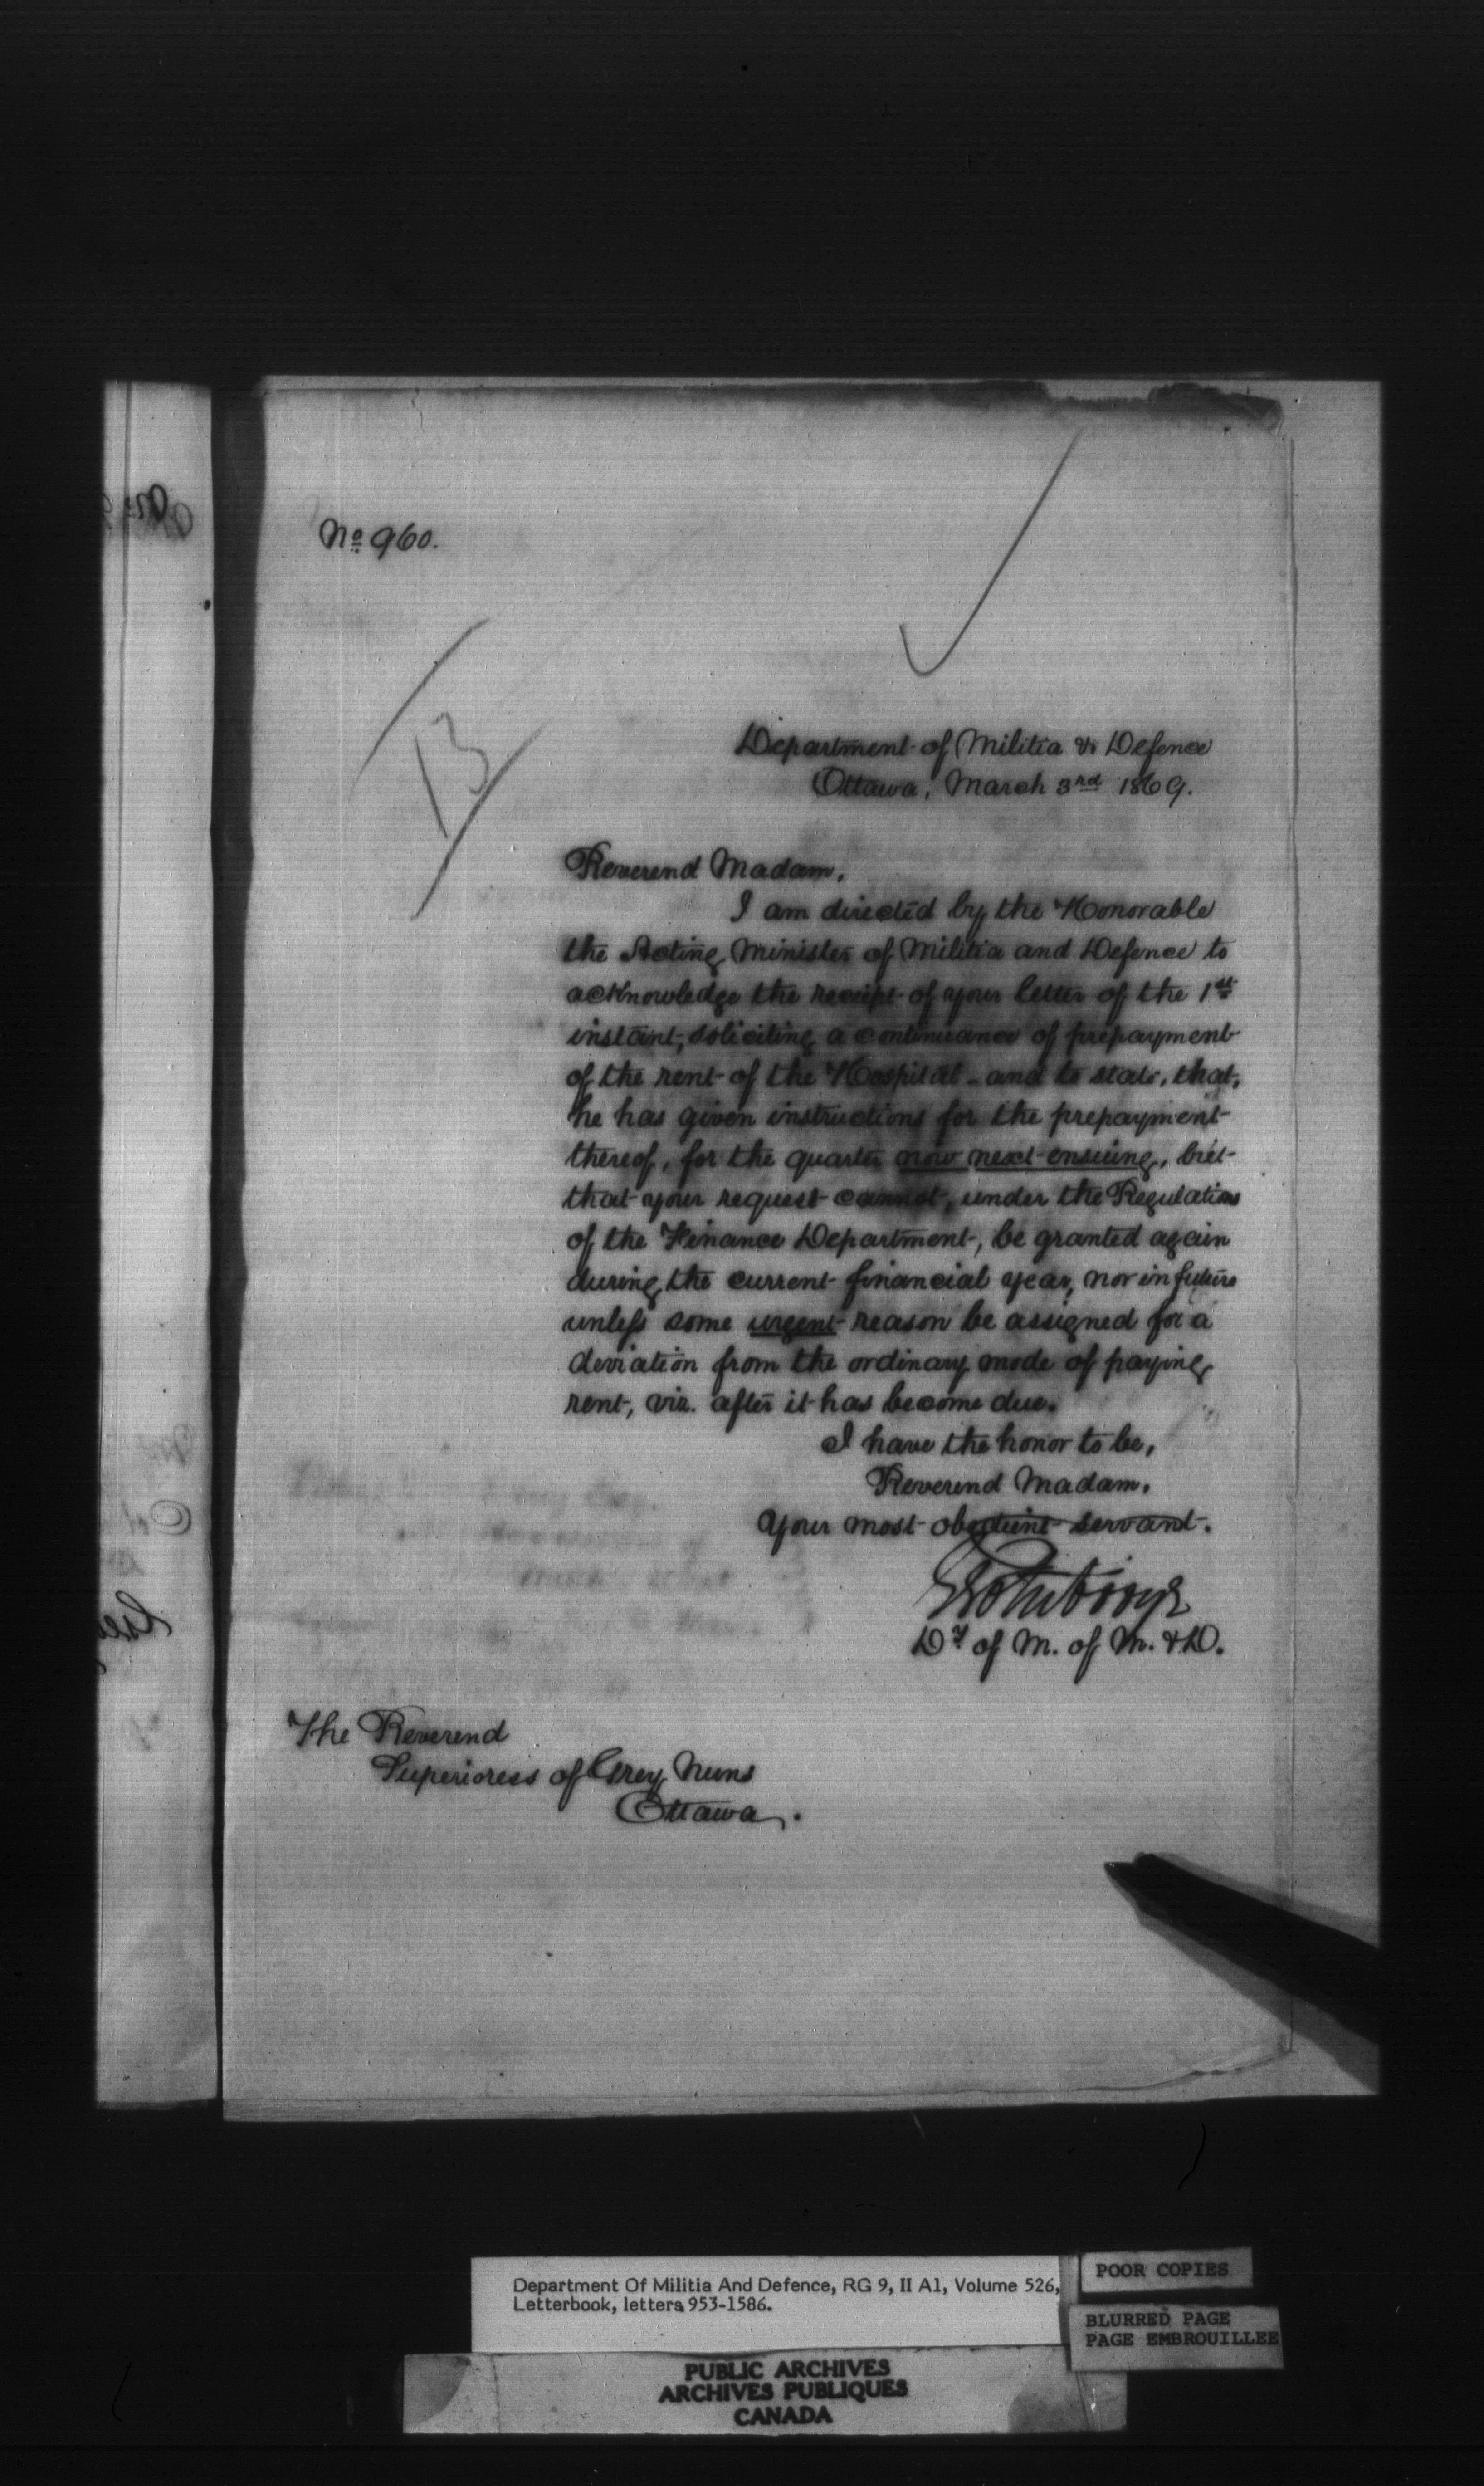 No 960.
13
Department of Militia & Defence
Ottawa, March 3rd 1869.
Reverend Madam,
I am directed by the Honorable
the Acting Minister of Militia and Defence to
acknowledge the receipt of your letter of the 1st
instant, soliciting a continuance of prepayment
of the rent of the Hospital - and to state, that,
he has given instructions for the prepayment
thereof, for the quarter now next ensuing, but
that your request cannot, under the Regulations
of the Finance Department, be granted again
during the current financial year, nor in future
unless some urgent reason be assigned for a
deviation from the ordinary mode of paying
rent, viz. after it has become due.
I have the honor to be,
Reverend Madam,
Your most obedient servant.
Dy of M. of M. & D.
The Reverend
Superioress of Grey Nuns
Ottawa.
Department Of Militia And Defence, RG 9, II A1, Volume 526,
Letterbook, letters 953-1586.
POOR COPIES
BLURRED PAGE
PAGE EMBROUILLEE
PUBLIC ARCHIVES
ARCHIVES PUBLIQUES
CANADA